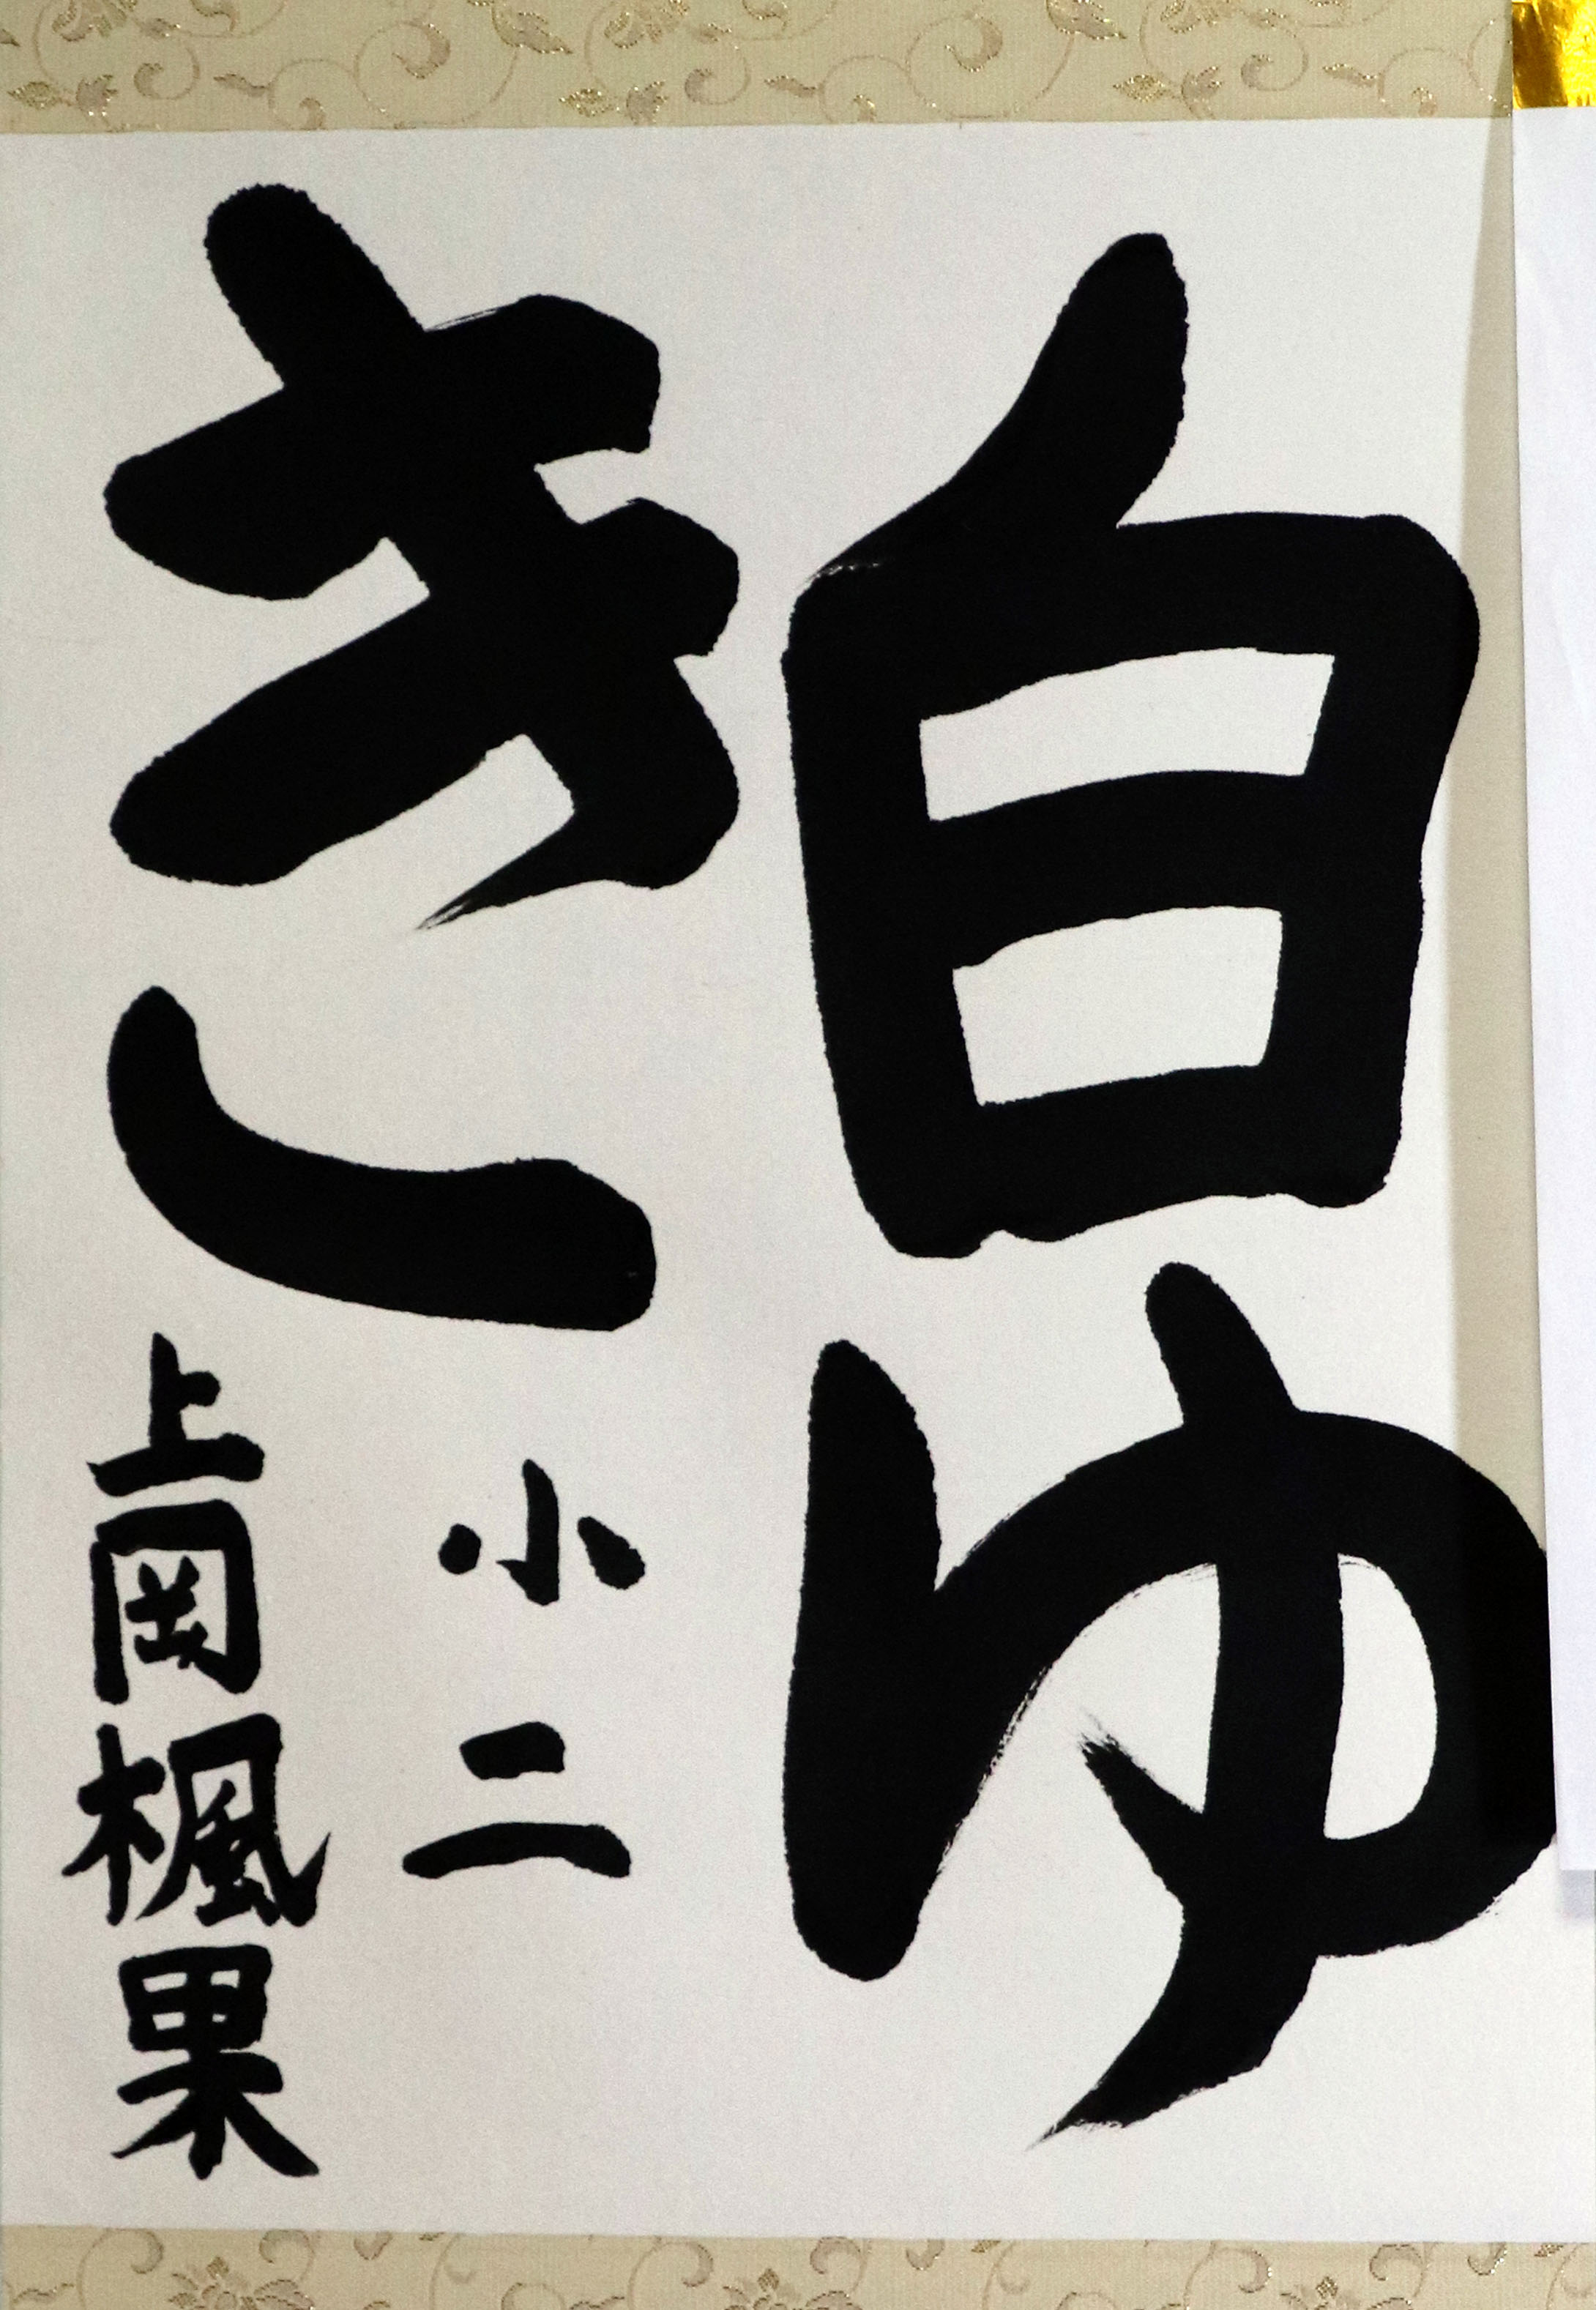 白ゆ
き
小二
上岡楓果